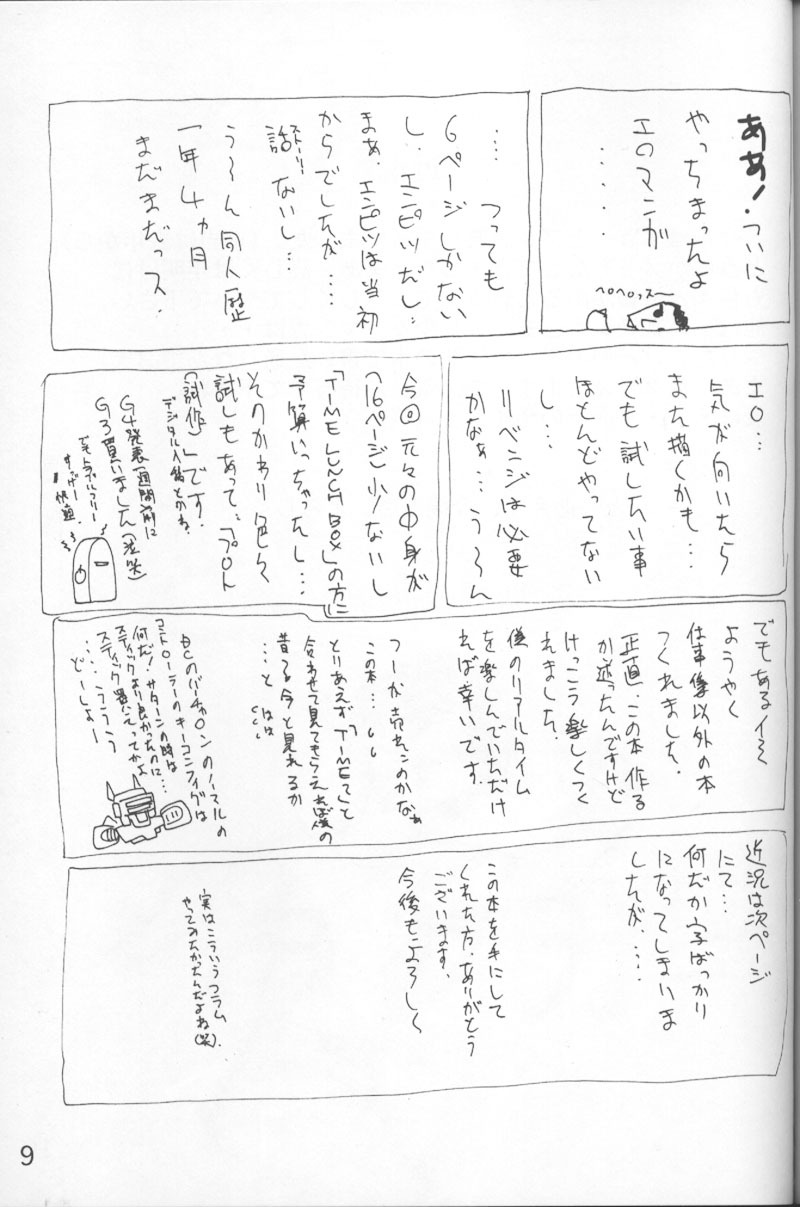 ああ!ついに
やっちまったよ
エロマンガ
・・・・・
ペロペロッス〜
…つっても
6ページしかない
し、エンピツだし…
まぁ、エンピツは当初
からでしたが…
ストーリー
話ないし…
う〜ん同人歴
一年4ヵ月
まだまだっス.
エロ…
気が向いたら
また描くかも…
でも試したい事
ほとんどやってない
し…
リベンジは必要
かなぁ…う〜ん
今回元々の中身が
(16ページ)少ないし
「TIME LUNCH BOX」の方に
予算いっちゃったし…
そのかわり色々
試しもあって…「プロト
(試作)」です.
デジタル入稿とかね.
G4発表一週間前に
G3買いました(泣笑)
でもトラブルフリー
すっげー快適.
でもあるイミ
ようやく
仕事像以外の本
つくれました.
正直、この本作る
か迷ったんですけど
けっこう楽しくつく
れました.
僕のリアルタイム
を楽しんでいただけ
れば幸いです.
つーか売れんのかなぁ
この本…
とりあえず「TIME」と
合わせて見てもらえれば僕の
昔る今と見れるか
…と はは
DCのバーチャロンのノーマルの
コントローラーのキーコンフィグは
何だ!サターンの時は
スティックより良かったのに…
スティック買えってかよ
……うううう
どーしよー
近況は次ページ
にて…
何だか字ばっかり
になってしまいま
したが、…
この本を手にして
くれた方、ありがとう
ございます、
今後もよろしく
実はこういうコラム
やってみたかったんだよね(笑).
9